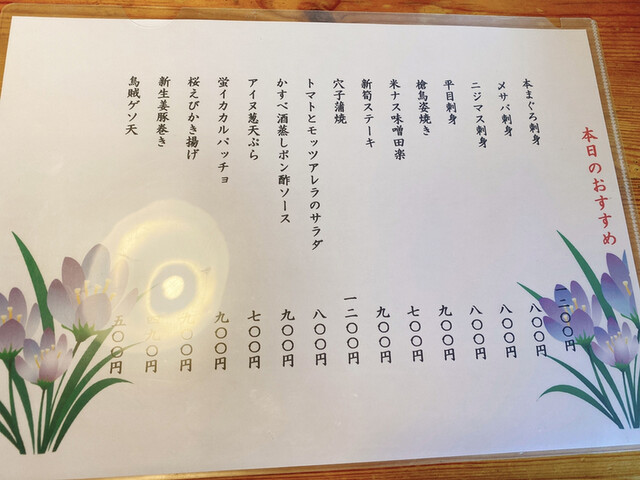 本日のおすすめ
本まぐろ刺身 一二〇〇円
〆サバ刺身 八〇〇円
ニジマス刺身 八〇〇円
平目刺身 八〇〇円
槍烏姿焼き 九〇〇円
米ナス味噌田楽 七〇〇円
新筍ステーキ 九〇〇円
穴子蒲焼 一二〇〇円
トマトとモッツアレラのサラダ 八〇〇円
かすべ酒蒸しポン酢ソース 九〇〇円
アイヌ葱天ぷら 七〇〇円
蛍イカカルパッチョ 九〇〇円
桜えびかき揚げ 九〇〇円
新生姜豚巻き
烏賊ゲソ天 五〇〇円